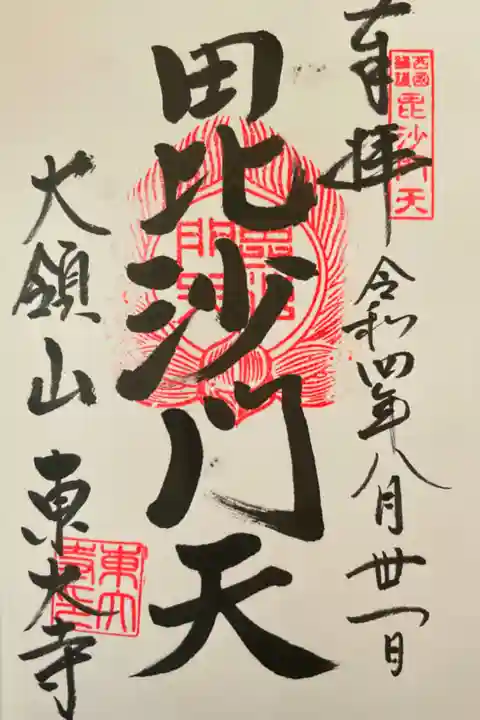 奉拝
令和四年八月卅一日
毘沙門天
大領山 東大寺
毘沙門天
東大寺